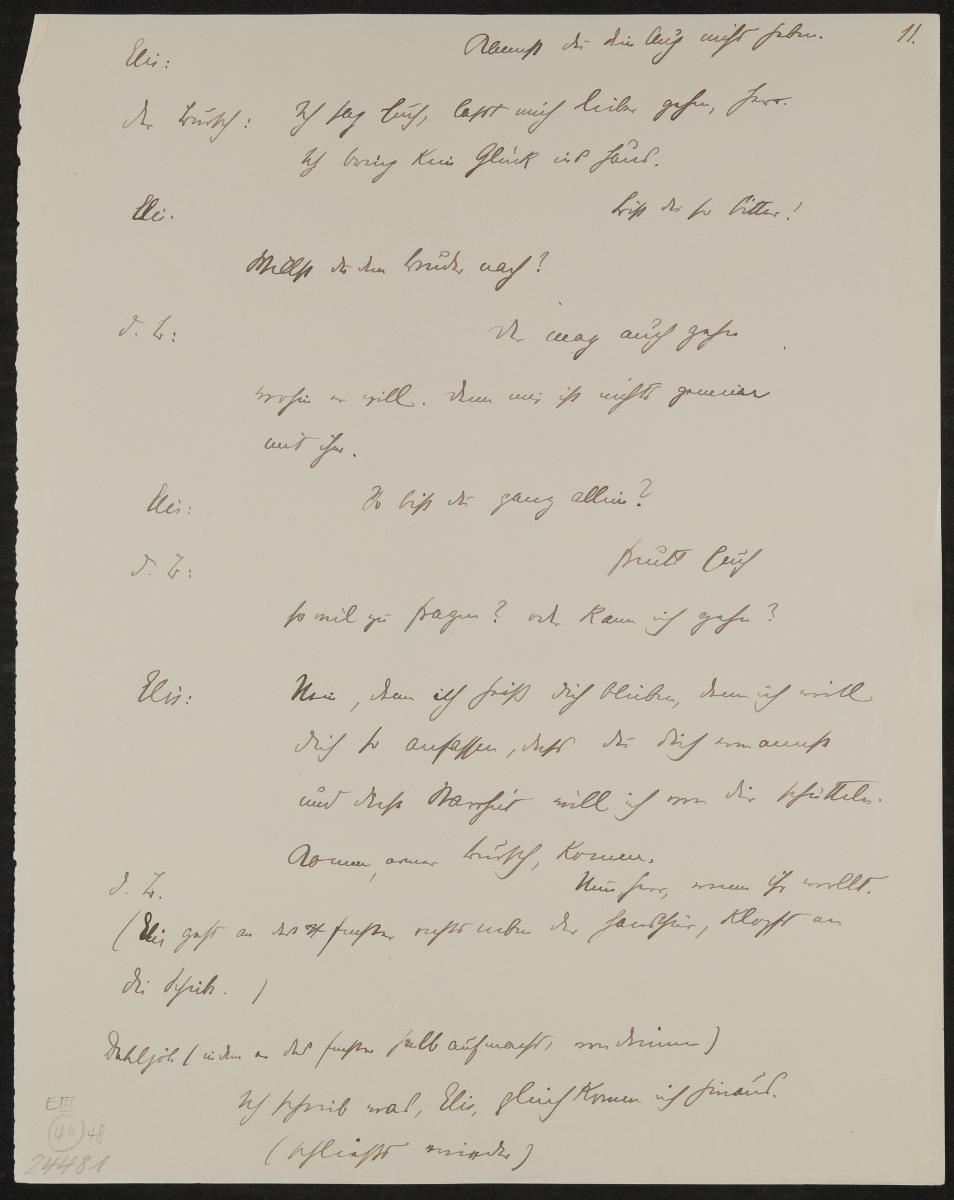 11.
Elis: Kannst du dein Aug nicht heben.
der Bursch: Ich sag Euch, lasst mich lieber gehn, Herr.
Ich bring kein Glück ins Haus.
Elis. bist du so bitter!
Willst du dem Bruder nach?
d. B: Der mag auch gehn
wohin er will. Denn mir ist nichts gemein
mit ihm.
Elis: So bist du ganz allein?
d. B: freut's Euch
so viel zu fragen? oder kann ich gehn?
Elis: Nein, denn ich heiß dich bleiben, denn ich will
dich so anfassen, dass du dich ermannst
und diese Starrheit will ich von dir schütteln.
Komm, armer Bursch, komm.
d. B. Nun Herr, wenn ihr wollt.
(Elis geht an das Fenster rechts neben der Hausthür, klopft an
die Scheibe.)
Dahljöh (indem er das Fenster halb aufmacht, von drinnen)
Ich schreib was, Elis, gleich komm ich hinaus.
(schließt wieder)
E III
40 48
24481